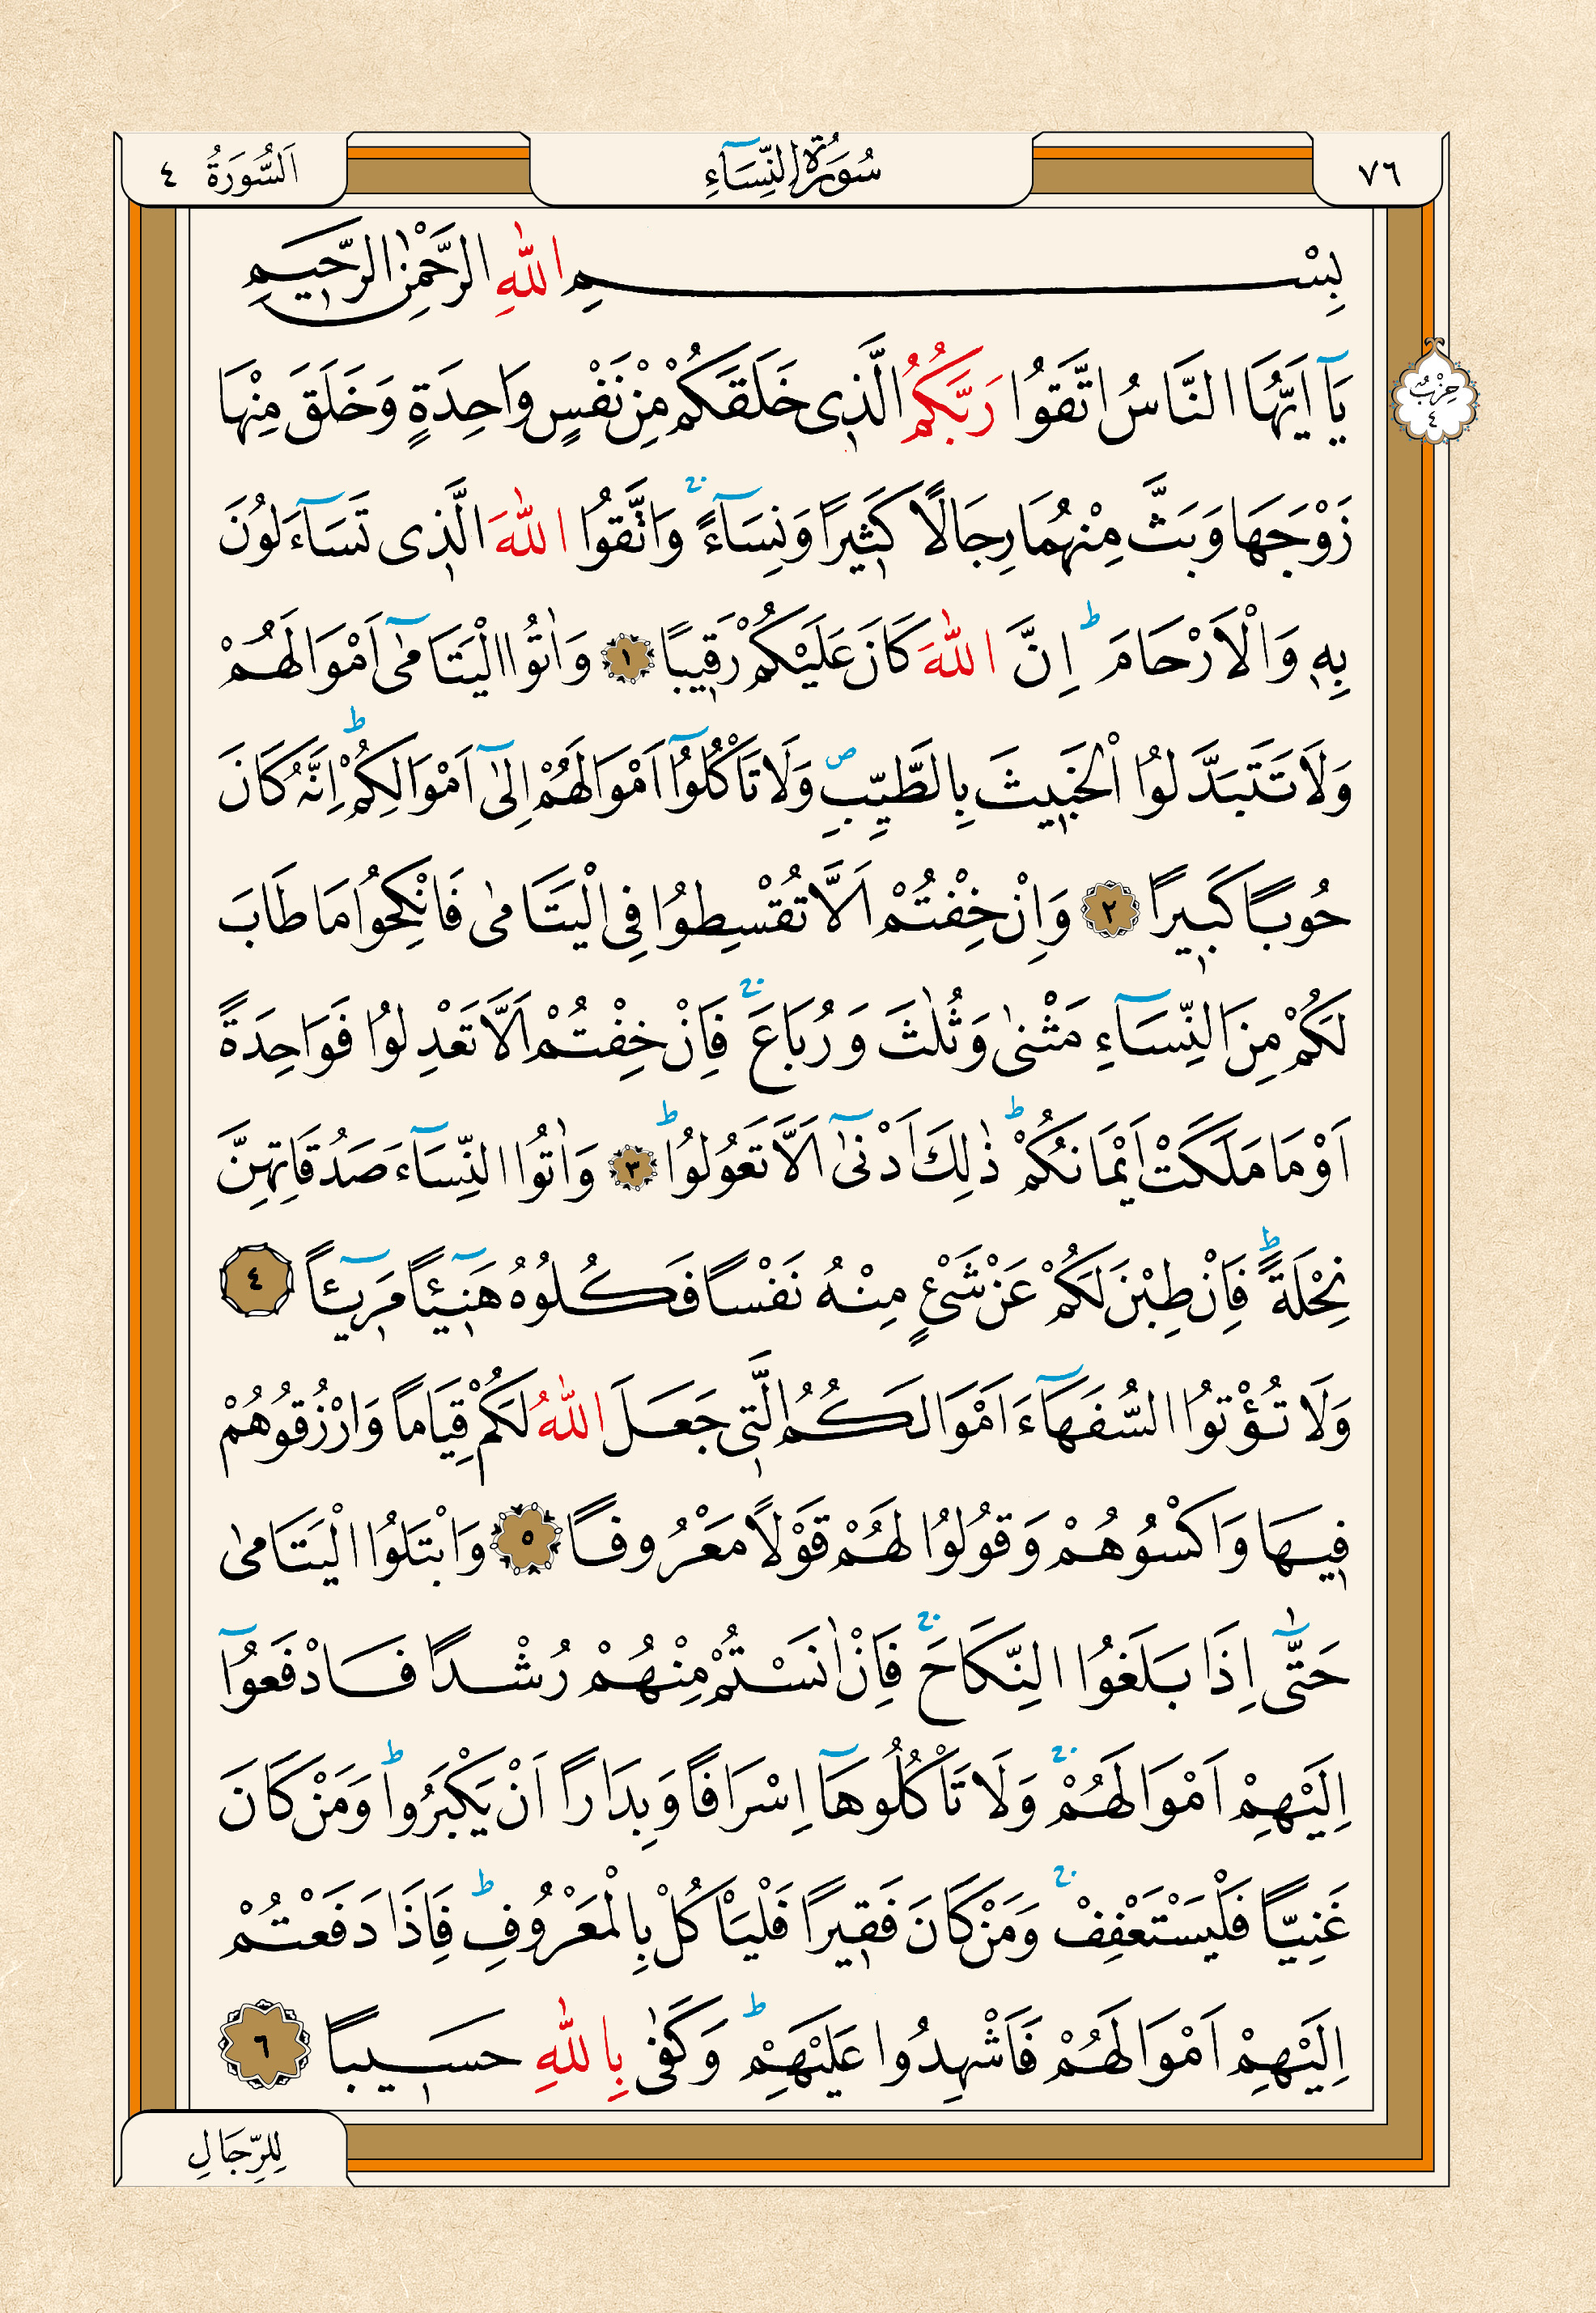 ٧٦
سُورَةُ النِّسَآءِ
اَلسُّورَةُ ٤
بِسْمِ اللّٰهِ الرَّحْمٰنِ الرَّحِيمِ
يَٓا اَيُّهَا النَّاسُ اتَّقُوا رَبَّكُمُ الَّذِى خَلَقَكُمْ مِنْ نَفْسٍ وَاحِدَةٍ وَخَلَقَ مِنْهَا
حِزْبٌ ٤
زَوْجَهَا وَبَثَّ مِنْهُمَا رِجَالًا كَثِيرًا وَنِسَٓاءًۚ وَاتَّقُوا اللّٰهَ الَّذِى تَسَٓاءَلُونَ
بِهِ وَالْاَرْحَامَۜ اِنَّ اللّٰهَ كَانَ عَلَيْكُمْ رَقِيبًا ١ وَاٰتُوا الْيَتَامٰٓى اَمْوَالَهُمْ
وَلَا تَتَبَدَّلُوا الْخَبِيثَ بِالطَّيِّبِۖ وَلَا تَاْكُلُٓوا اَمْوَالَهُمْ اِلٰٓى اَمْوَالِكُمْۜ اِنَّهُ كَانَ
حُوبًا كَبِيرًا ٢ وَاِنْ خِفْتُمْ اَلَّا تُقْسِطُوا فِى الْيَتَامٰى فَانْكِحُوا مَا طَابَ
لَكُمْ مِنَ النِّسَٓاءِ مَثْنٰى وَثُلٰثَ وَرُبَاعَۚ فَاِنْ خِفْتُمْ اَلَّا تَعْدِلُوا فَوَاحِدَةً
اَوْ مَا مَلَكَتْ اَيْمَانُكُمْۜ ذٰلِكَ اَدْنٰٓى اَلَّا تَعُولُواۜ ٣ وَاٰتُوا النِّسَٓاءَ صَدُقَاتِهِنَّ
نِحْلَةًۜ فَاِنْ طِبْنَ لَكُمْ عَنْ شَىْءٍ مِنْهُ نَفْسًا فَكُلُوهُ هَنِٓيـًٔا مَرِٓيـًٔا ٤
وَلَا تُؤْتُوا السُّفَهَٓاءَ اَمْوَالَكُمُ الَّتِى جَعَلَ اللّٰهُ لَكُمْ قِيَامًا وَارْزُقُوهُمْ
فِيهَا وَاكْسُوهُمْ وَقُولُوا لَهُمْ قَوْلًا مَعْرُوفًا ٥ وَابْتَلُوا الْيَتَامٰى
حَتّٰٓى اِذَا بَلَغُوا النِّكَاحَۚ فَاِنْ اٰنَسْتُمْ مِنْهُمْ رُشْدًا فَادْفَعُٓوا
اِلَيْهِمْ اَمْوَالَهُمْۚ وَلَا تَاْكُلُوهَٓا اِسْرَافًا وَبِدَارًا اَنْ يَكْبَرُواۜ وَمَنْ كَانَ
غَنِيًّا فَلْيَسْتَعْفِفْۚ وَمَنْ كَانَ فَقِيرًا فَلْيَاْكُلْ بِالْمَعْرُوفِۜ فَاِذَا دَفَعْتُمْ
اِلَيْهِمْ اَمْوَالَهُمْ فَاَشْهِدُوا عَلَيْهِمْۜ وَكَفٰى بِاللّٰهِ حَسِيبًا ٦
لِلرِّجَالِ